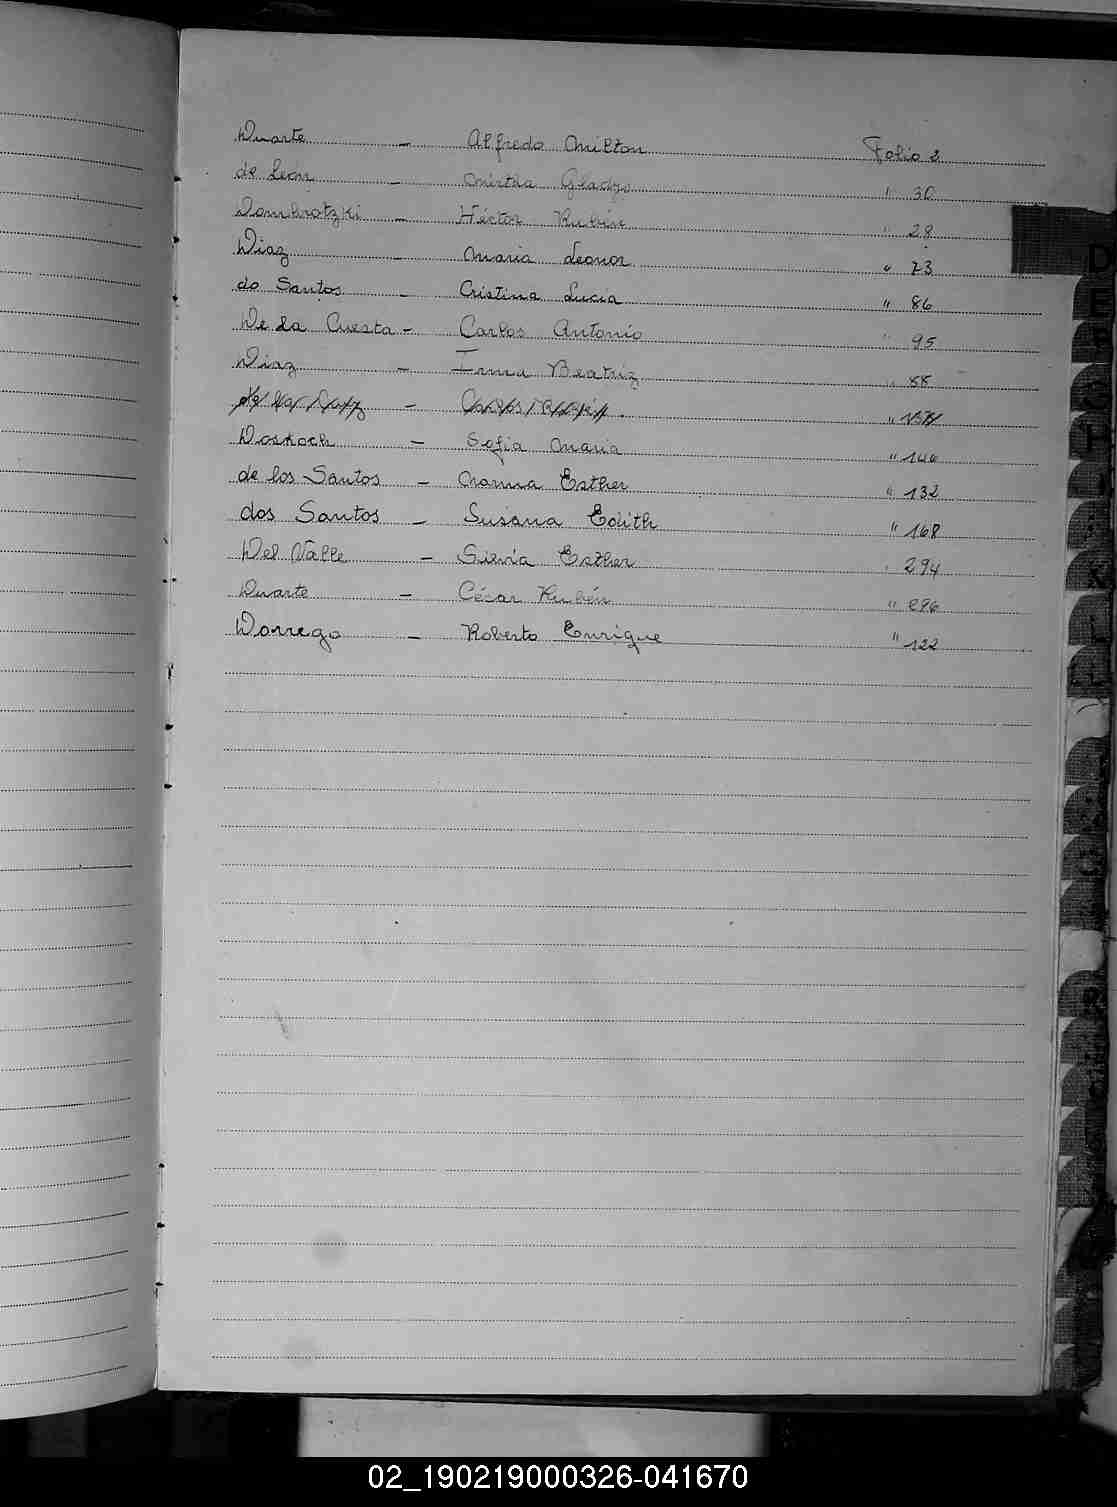 Duarte - Alfredo Milton Folio 2
de León - Mirtha Gladys " 30
Dombrotzki - Héctor Rubén " 28
Diaz - Maria Leonor " 73
do Santos - Cristina Lucia " 86
De La Cuesta - Carlos Antonio " 95
Diaz - Irma Beatriz " 88
de la - Carlos "
Doskoch - Sofia Maria "
de los Santos - Norma Esther " 132
dos Santos - Susana Edith " 168
Del Valle - Silvia Esther " 294
Duarte - César Rubén " 296
Dorrego - Roberto Enrique " 122
D
E
02_190219000326-041670